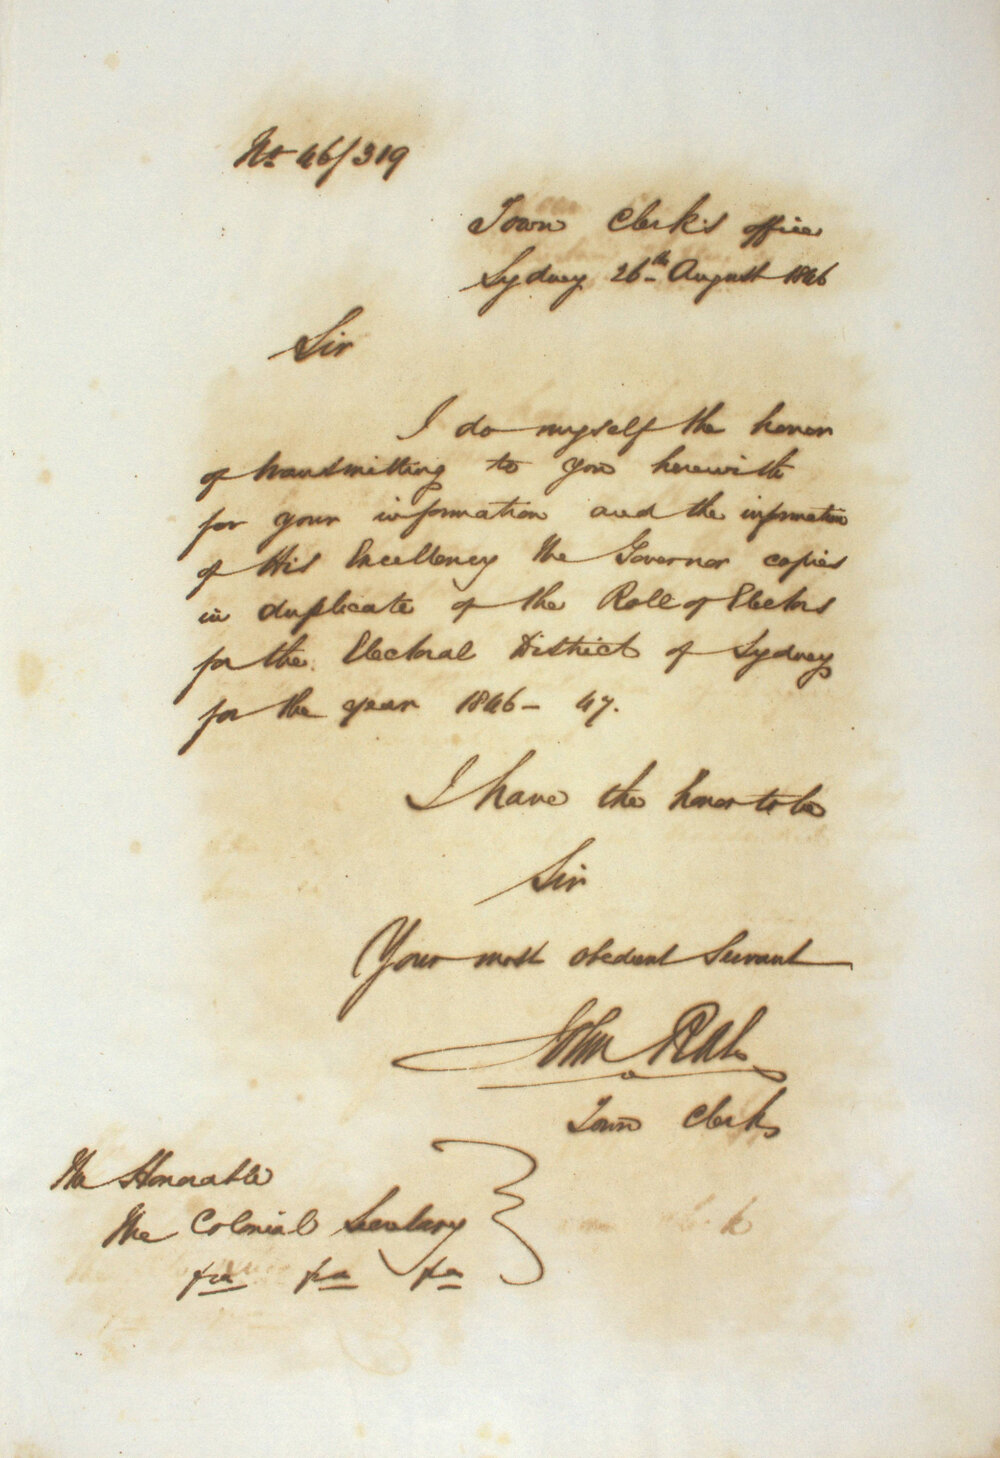 No 46/319
Town Clerk's office
Sydney 26th August 1846
Sir
I do myself the honor
of transmitting to you herewith
for your information and the information
of His Excellency the Governor copies
in duplicate of the Roll of Electors
for the Electoral District of Sydney
for the year 1846-47.
I have the honor to be
Sir
Your most obedient Servant
John
Town Clerk
The Honorable
The Colonial Secretary
&c &c &c